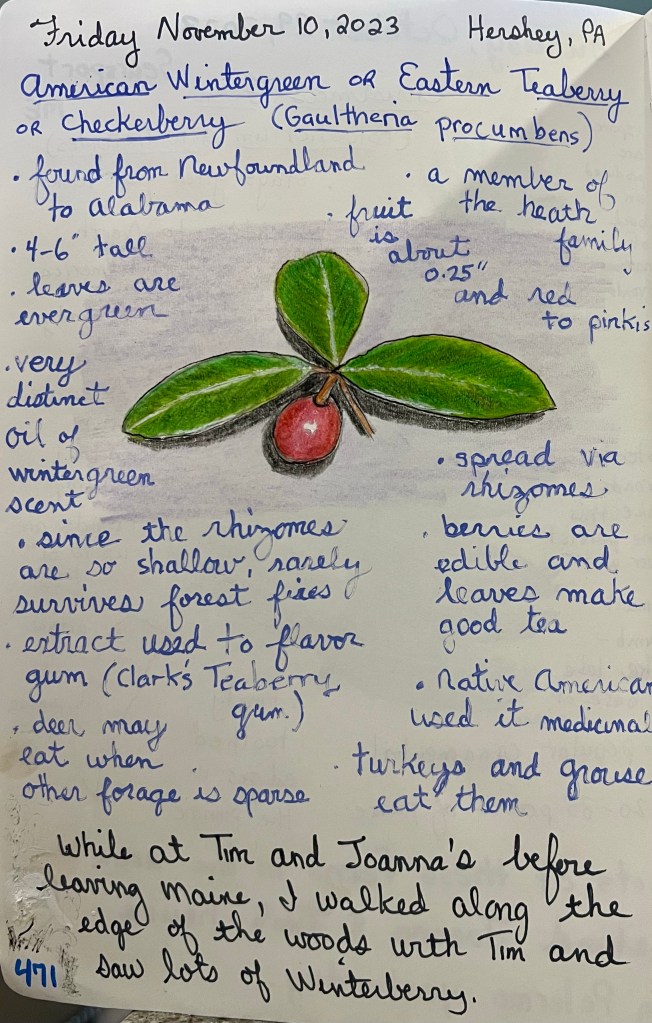 Friday November 10, 2023 Hershey, PA
American Wintergreen or Eastern Teaberry
or Checkerberry (Gaultheria procumbens)
• found from Newfoundland
to Alabama
• a member of
the heath
family
• fruit
is
about
0.25"
and red
to pinkis
• 4-6" tall
• leaves are
evergreen
• very
distinct
oil of
wintergreen
scent
• spread via
rhizomes
• since the rhizomes
are so shallow, rarely
survives forest fires
• berries are
edible and
leaves make
good tea
• extract used to flavor
gum (Clark's Teaberry
gum.)
• native American
used it medicinal
• deer may
eat when
other forage is sparse
• turkeys and grouse
eat them
While at Tim and Joanna's before
leaving Maine, I walked along the
edge of the woods with Tim and
saw lots of Winterberry.
471